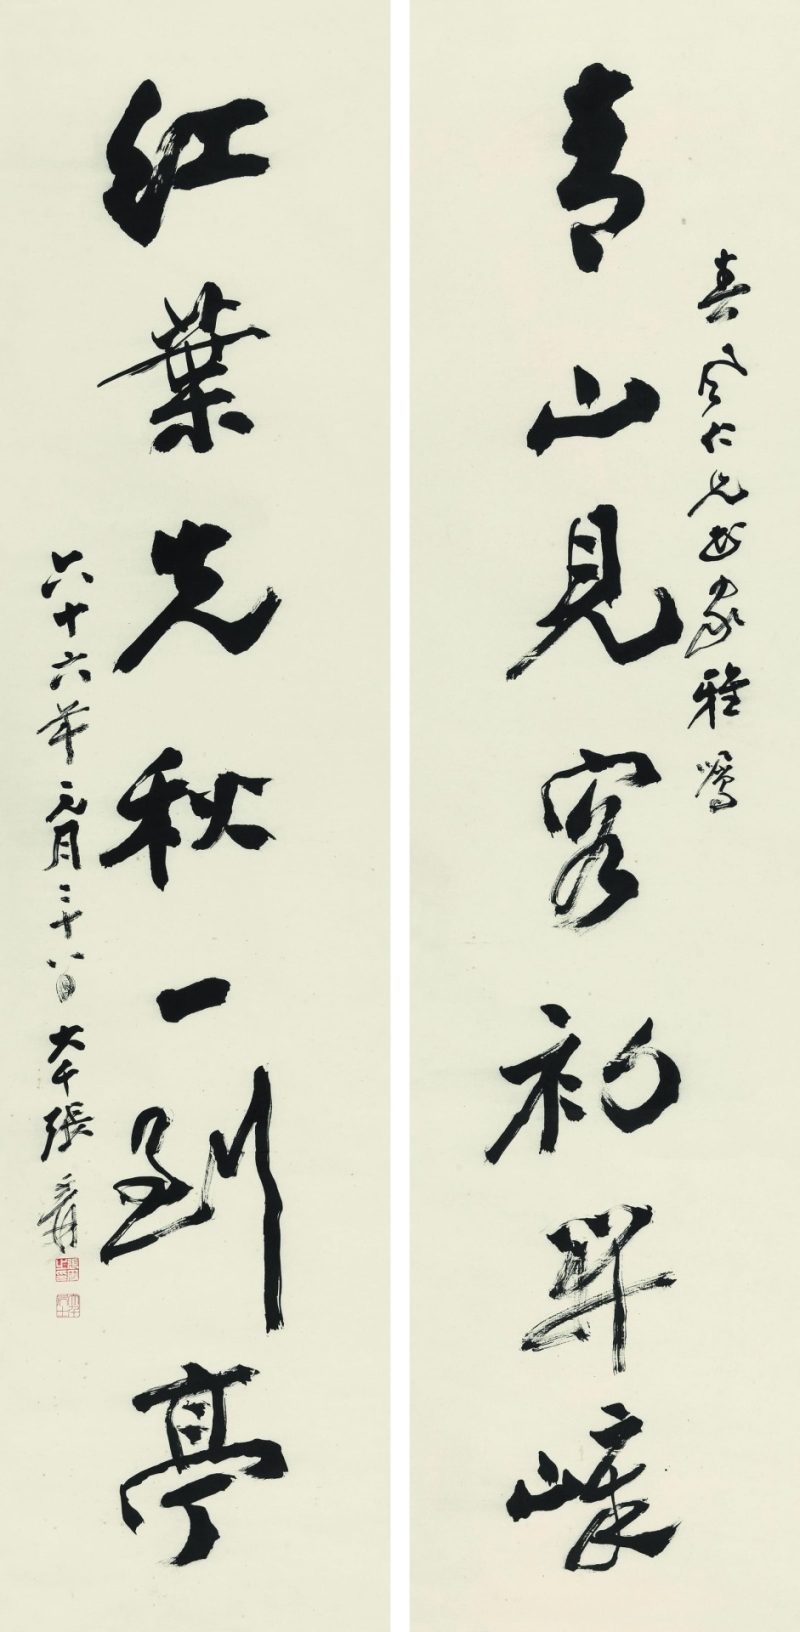 青山見客初開嶂
春風仁兄家雅囑
紅葉先秋一到亭
六十六年元月二十八日大千張爰